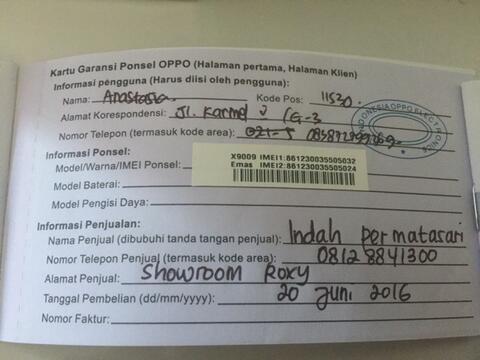 Kartu Garansi Ponsel OPPO (Halaman pertama, Halaman Klien)
Informasi pengguna (Harus diisi oleh pengguna):
Nama: Anastasia Kode Pos: 11530
Alamat Korespondensi: Jl. Karmel 2 /G-3
Nomor Telepon (termasuk kode area):
Informasi Ponsel:
Model/Warna/IMEI Ponsel: X9009 IMEI1:861230035505032
Emas IMEI2:861230035505024
Model Baterai:
Model Pengisi Daya:
Informasi Penjualan:
Nama Penjual (dibubuhi tanda tangan penjual): Indah permatasari
Nomor Telepon Penjual (termasuk kode area): 08128841300
Alamat Penjual: Showroom Roxy
Tanggal Pembelian (dd/mm/yyyy): 20 Juni 2016
Nomor Faktur: